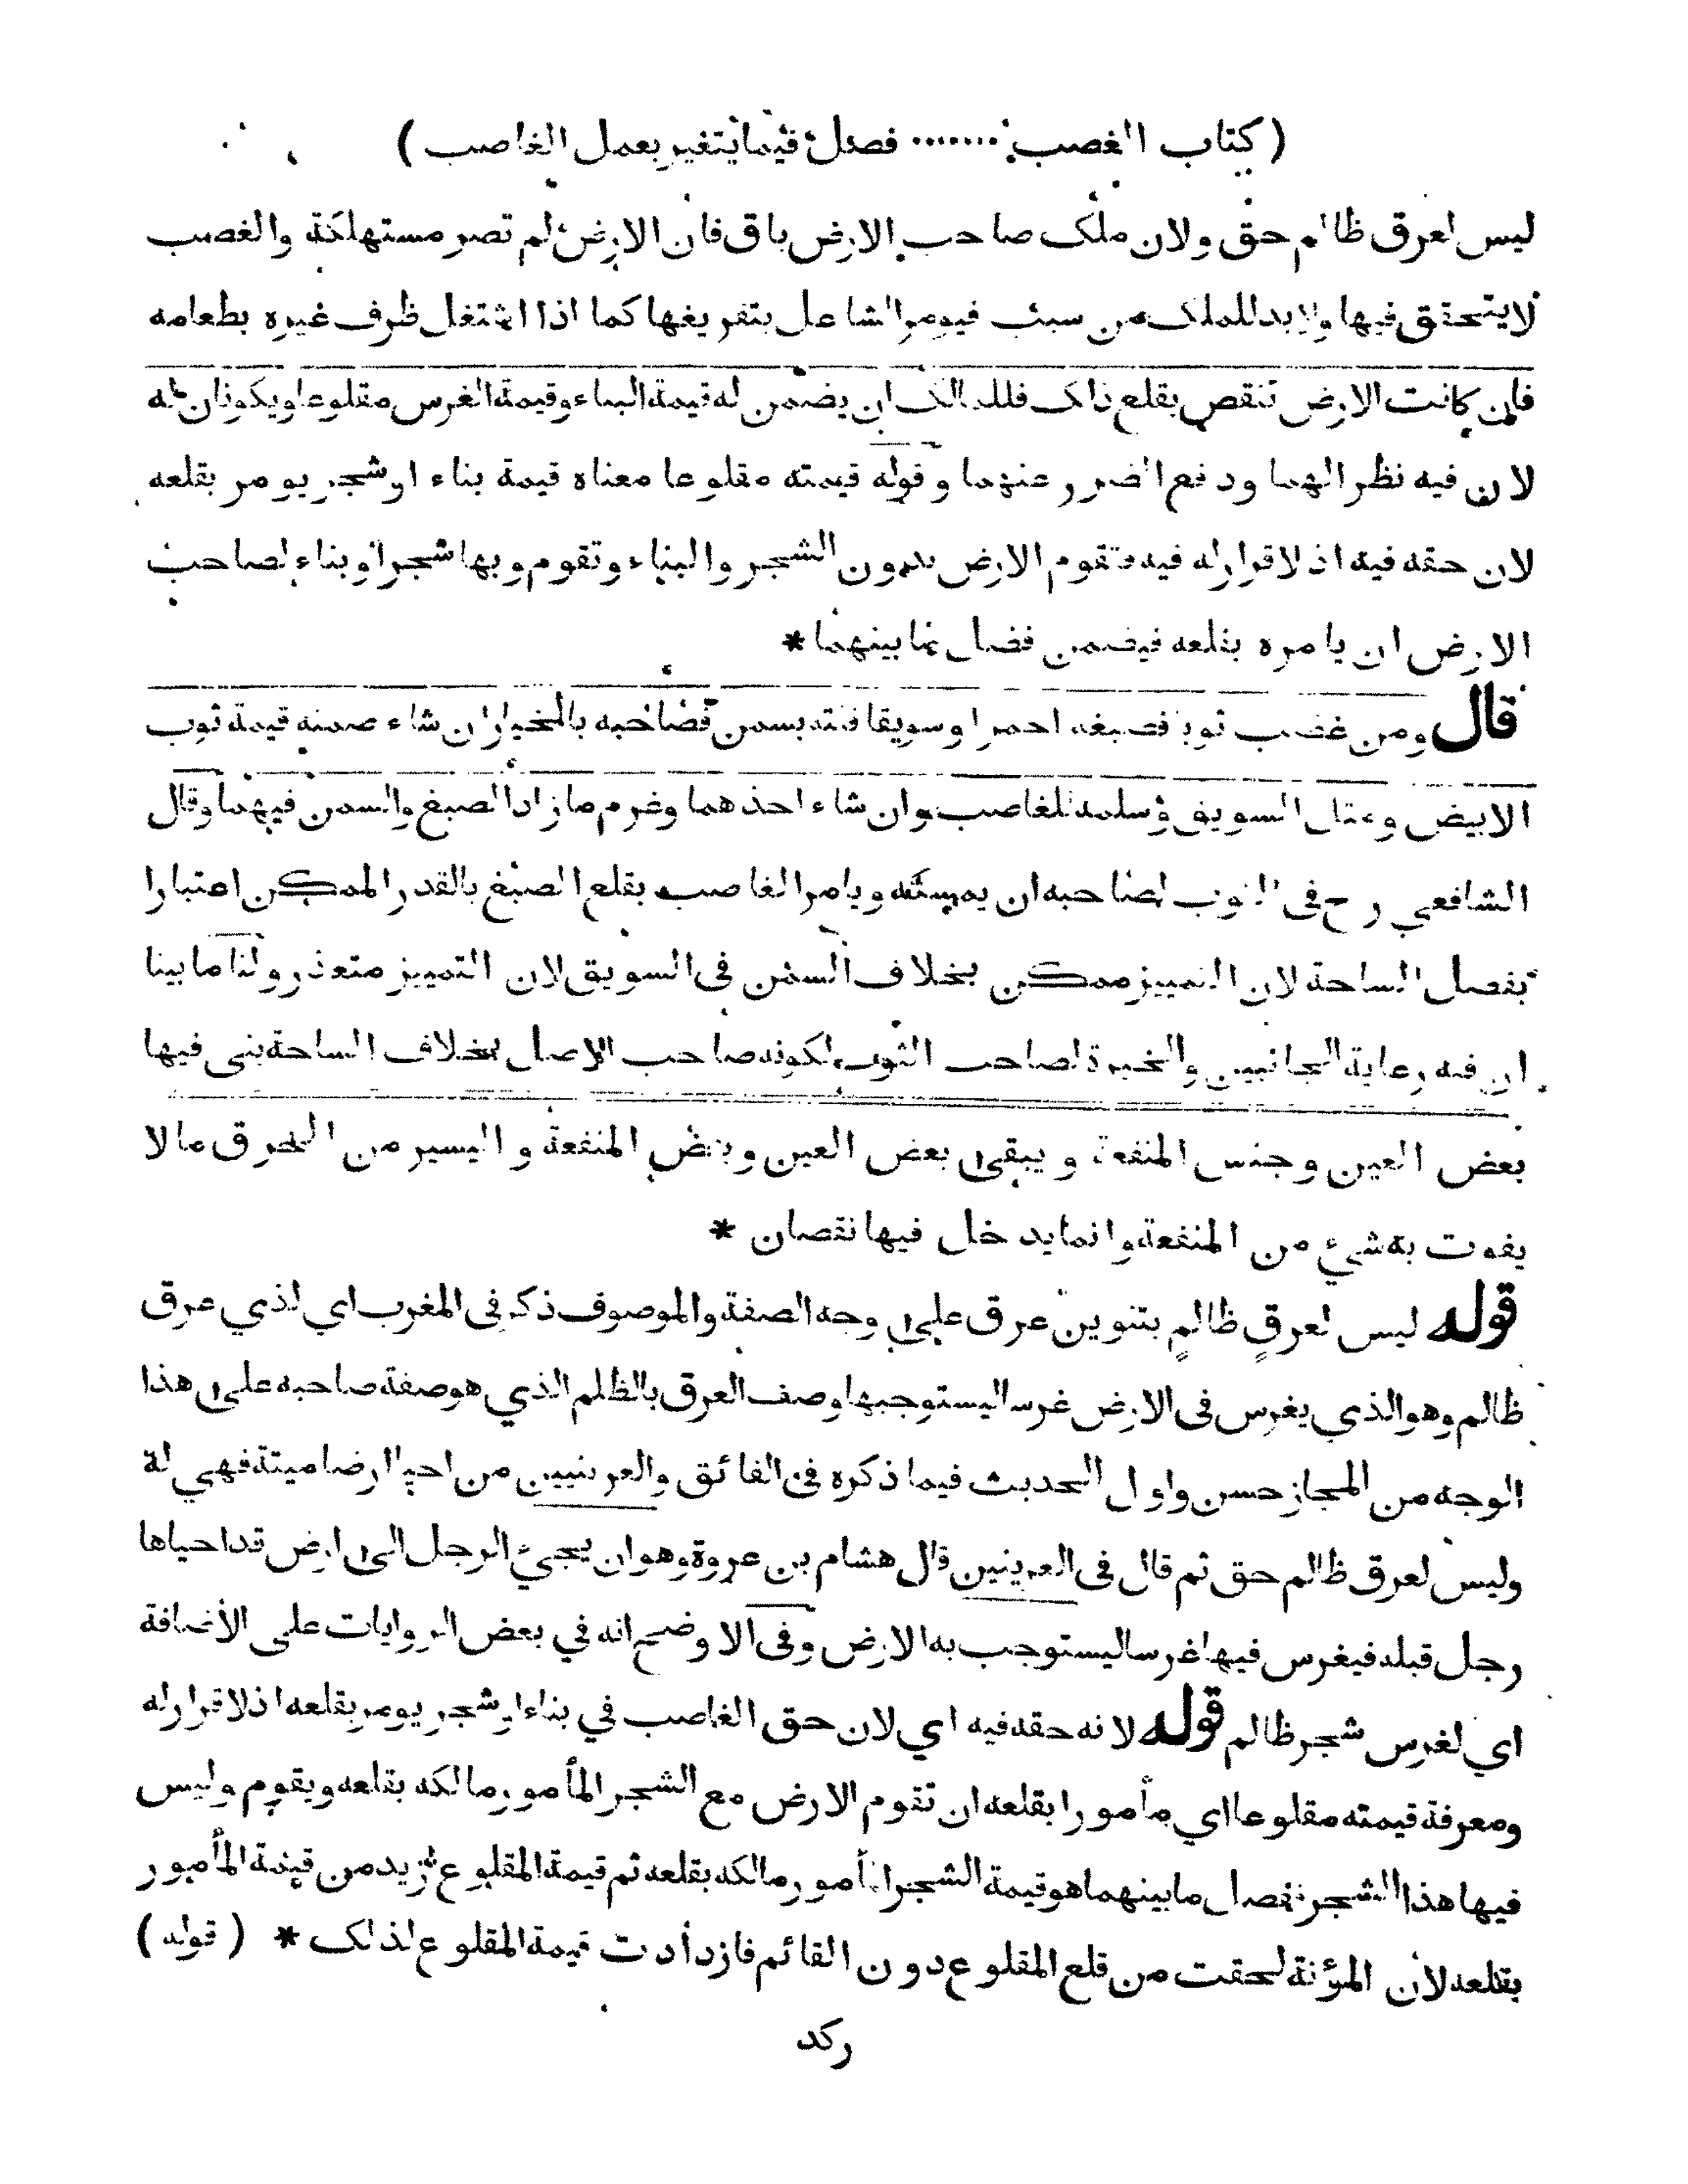 ( كتاب الغصب ....... فصل فيما يتغير بعمل الغاصب )
ليس لعرق ظالم حق ولان ملك صاحب الارض باق فان الارض لم تصر مستهلكة والغصب
لا يتحقق فيها ولا بد للملك من سبب فيومر الشاغل بتفريغها كما اذا اشتغل ظرف غيره بطعامه
فان كانت الارض تنقص بقلع ذلك فللمالك ان يضمن له قيمة البناء وقيمة الغرس مقلوعا ويكونان له
لان فيه نظر الهما ودفع الضرر عنهما وقوله قيمته مقلوعا معناه قيمة بناء او شجر يومر بقلعه
لان حقه فيه اذ لا قرار له فيه فتقوم الارض بدون الشجر والبناء وتقوم وبها شجر او بناء لصاحب
الارض ان يامره بقلعه فيضمن فضل ما بينهما *
قال ومن غصب ثوبا فصبغه احمر او سويقا فلته بسمن فصاحبه بالخيار ان شاء ضمنه قيمة ثوب
الابيض ومثل السويق وسلمه للغاصب وان شاء اخذهما وغرم ما زاد الصبغ والسمن فيهما وقال
الشافعي رح فى الثوب لصاحبه ان يمسكه ويامر الغاصب بقلع الصبغ بالقدر الممكن اعتبارا
بفصل الساحة لان التمييز ممكن بخلاف السمن فى السويق لان التمييز متعذر ولنا ما بينا
ان فيه رعاية الجانبين والخيرة لصاحب الثوب لكونه صاحب الاصل بخلاف الساحة بنى فيها
بعض العين وجنس المنفعة ويبقى بعض العين وبعض المنفعة واليسير من الخرق ما لا
يفوت به شيء من المنفعة وانما يدخل فيها نقصان *
قوله ليس لعرقٍ ظالمٍ بتنوين عرق على وجه الصفة والموصوف ذكر فى المغرب اي لذي عرق
ظالم وهو الذي يغرس فى الارض غرسا ليستوجبها وصف العرق بالظلم الذي هو صفة صاحبه على هذا
الوجه من المجاز حسن واول الحديث فيما ذكره فى الفائق والغريبين من احيا ارضا ميتة فهي له
وليس لعرق ظالم حق ثم قال فى الغريبين قال هشام بن عروة وهو ان يجيئ الرجل الى ارض قد احياها
رجل قبله فيغرس فيها غرسا ليستوجب به الارض وفى الاوضح انه في بعض الروايات على الأضافة
اي لغرس شجر ظالم قوله لانه حقه فيه اي لان حق الغاصب في بناء او شجر يومر بقلعه اذ لا قرار له
ومعرفة قيمته مقلوعا اي مأمورا بقلعه ان تقوم الارض مع الشجر المأمور مالكه بقلعه ويقوم وليس
فيها هذا الشجر ففضل ما بينهما هو قيمة الشجر المأمور مالكه بقلعه ثم قيمة المقلوع تزيد من قيمة المأمور
بقلعه لأن المؤنة لحقت من قلع المقلوع دون القائم فازدأدت قيمة المقلوع لذلك * ( قوله )
ركد